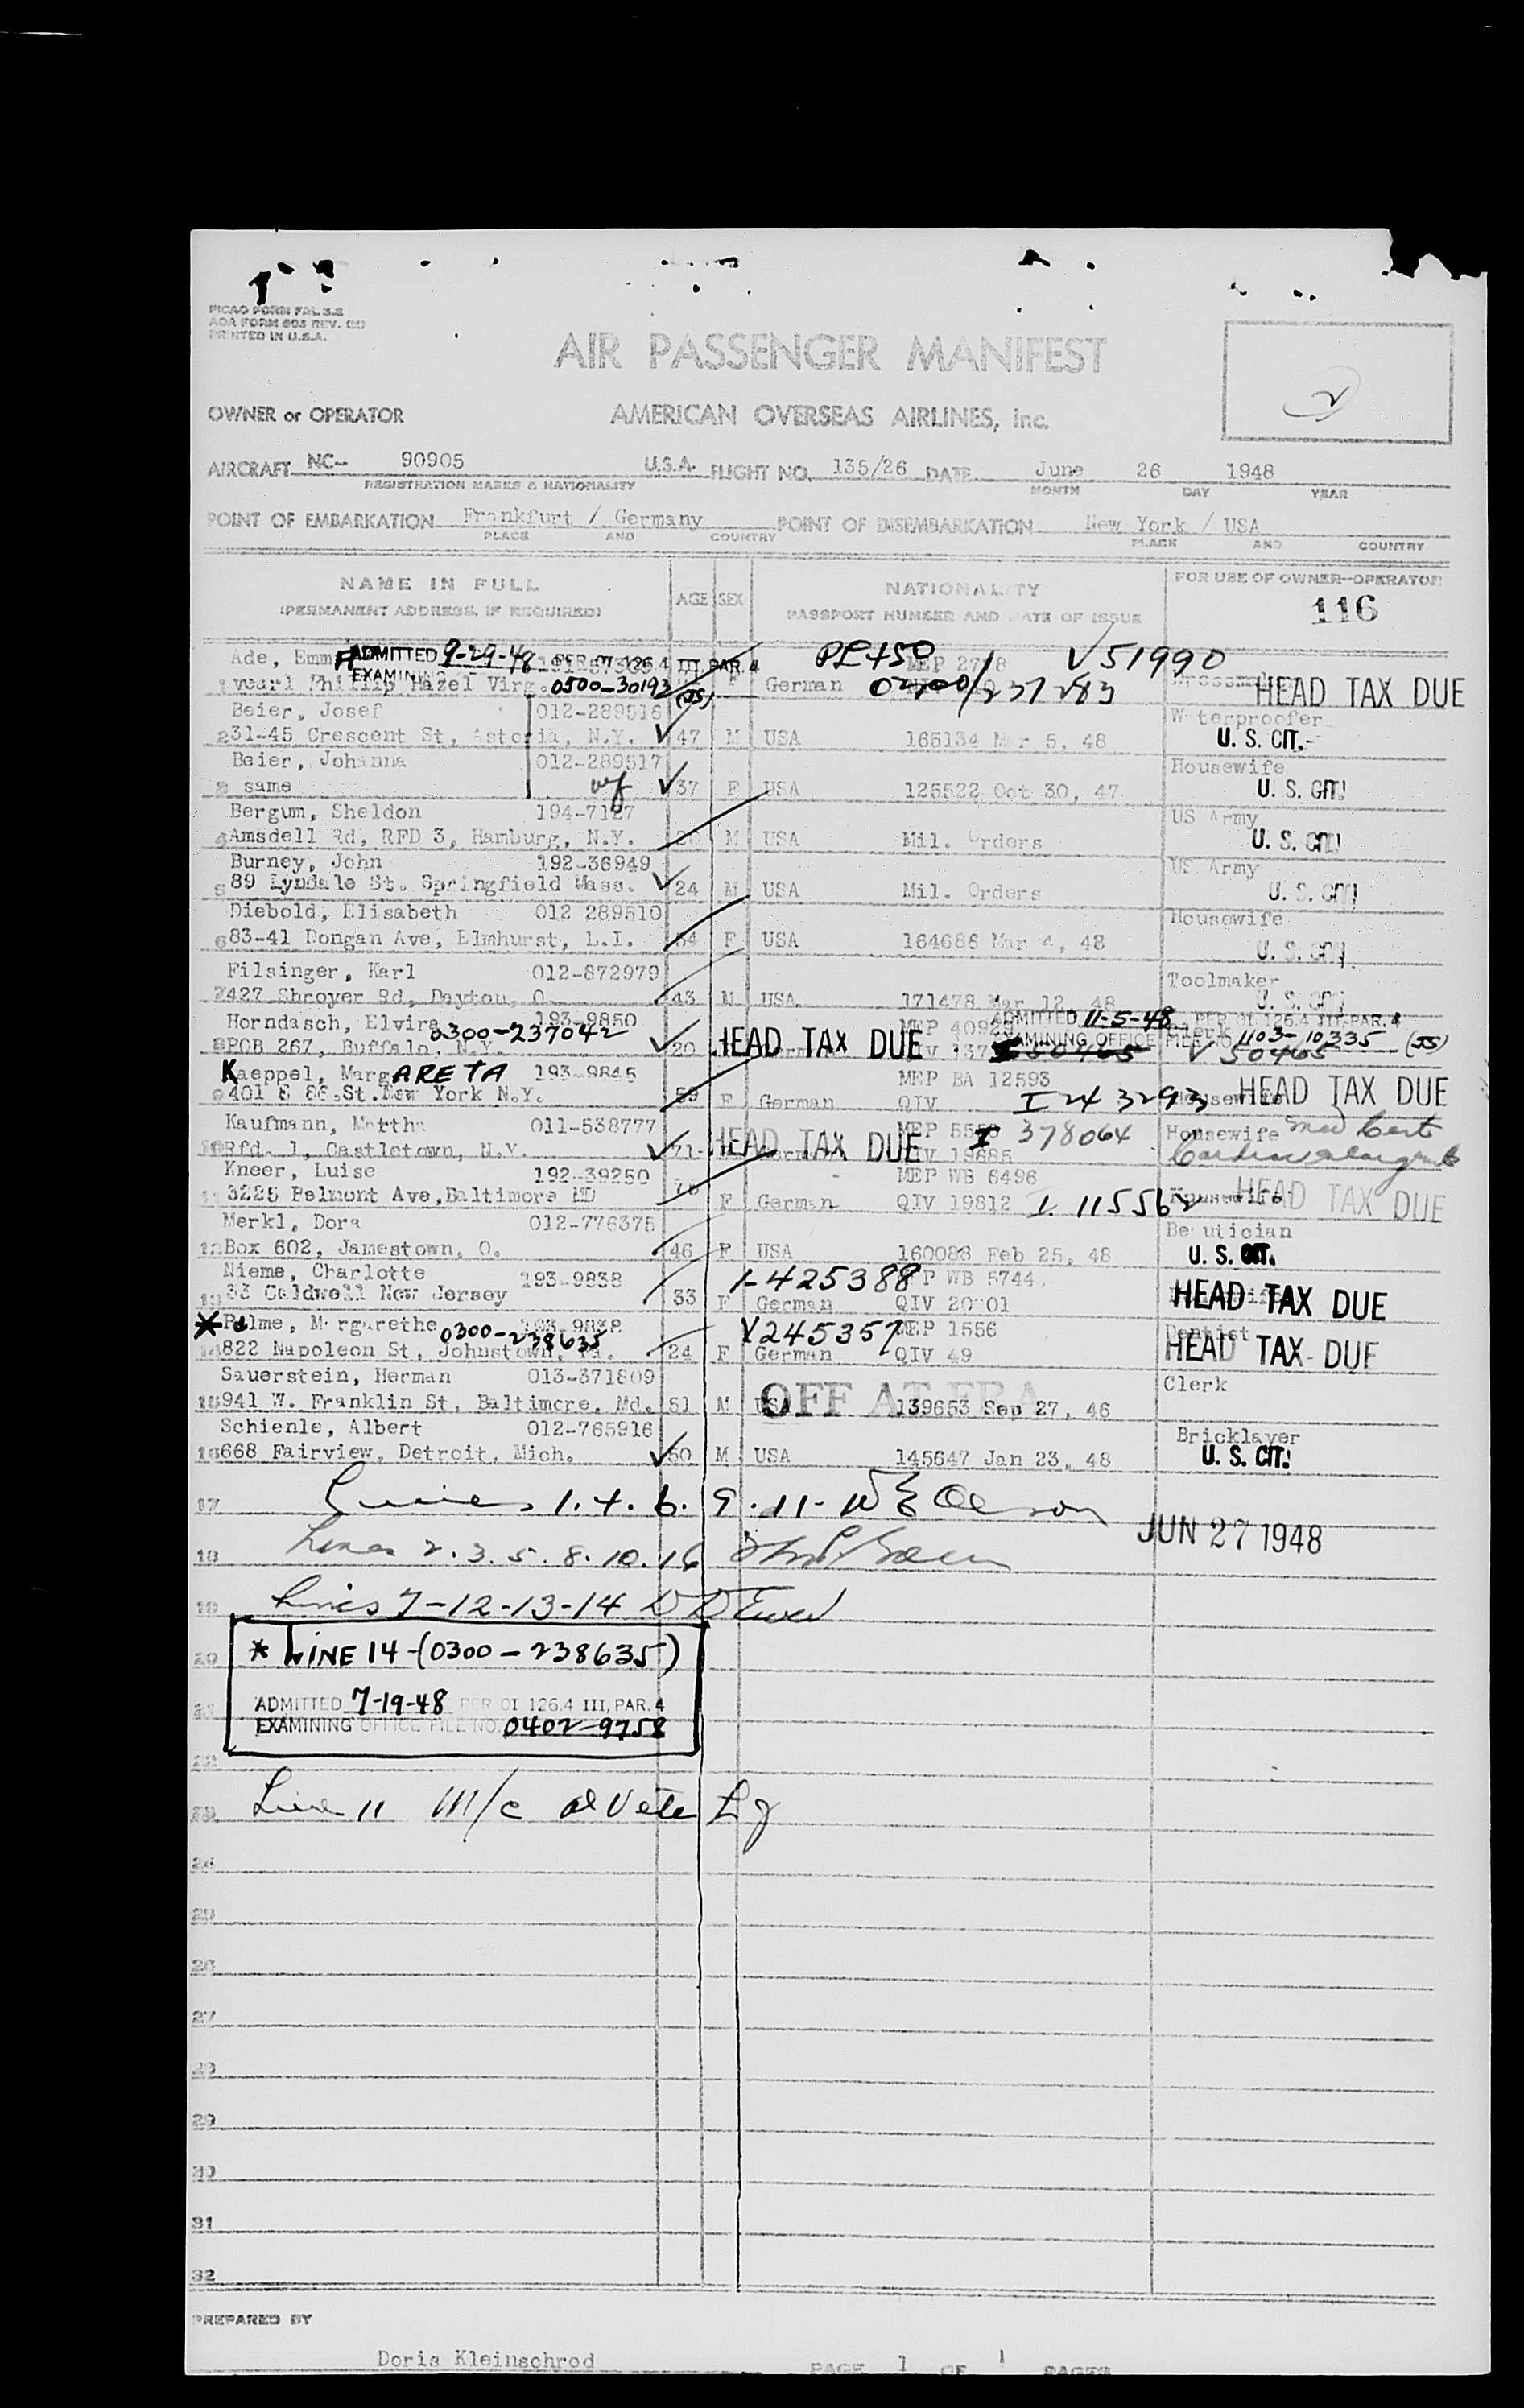 PICAO FORM FAL 3.2
AOA FORM 603 REV.
PRINTED IN U.S.A.
AIR PASSENGER MANIFEST
OWNER or OPERATOR AMERICAN OVERSEAS AIRLINES, Inc.
AIRCRAFT NC- 90905 U.S.A. FLIGHT NO. 135/26 DATE June 26 1948
REGISTRATION MARKS & NATIONALITY MONTH DAY YEAR
POINT OF EMBARKATION Frankfurt / Germany POINT OF DISEMBARKATION New York / USA
PLACE AND COUNTRY PLACE AND COUNTRY
NAME IN FULL AGE SEX NATIONALITY FOR USE OF OWNER-OPERATOR
(PERMANENT ADDRESS, IF REQUIRED) PASSPORT NUMBER AND DATE OF ISSUE 116
Ade, Emm ADMITTED 9-29-48 PER OI 126.4 III, PAR. 4 MEP V51990
EXAMINING
1 Phillip Hazel Virg. 0500-30193 (JS) F German 237283 HEAD TAX DUE
Beier, Josef 012-289516 Waterproofer
2 31-45 Crescent St, Astoria, N.Y. 47 M USA 165134 Mar 5, 48 U. S. CIT.
Beier, Johanna 012-289517 Housewife
3 same wf 37 F USA 125522 Oct 30, 47 U. S. CIT.
Bergum, Sheldon 194-7127 US Army
4 Amsdell Rd, RFD 3, Hamburg, N.Y. M USA Mil. Orders U. S. CIT.
Burney, John 192-36949 US Army
5 89 Lyndale St. Springfield Mass. 24 M USA Mil. Orders U. S. CIT.
Diebold, Elisabeth 012 289510 Housewife
6 83-41 Dongan Ave, Elmhurst, L.I. 54 F USA 164686 Mar 4, 48 U. S. CIT.
Filsinger, Karl 012-872979 Toolmaker
7 427 Shroyer Rd, Dayton, O. 43 M USA 171478 Mar 12, 48 U. S. CIT.
Horndasch, Elvira 193-9850 MEP ADMITTED 11-5-48 PER OI 126.4 III, PAR. 4
0300-237042 EXAMINING OFFICE FILE NO. 1103-10335 (JS)
8 POB 267, Buffalo, N.Y. 20 HEAD TAX DUE V 50465
Kaeppel, MargARETA 193-9845 MEP BA 12593
9 401 E 86.St.New York N.Y. 59 F German QIV I 243293 Housewife HEAD TAX DUE
Kaufmann, Martha 011-538777 I 378064 Housewife Med Cert
10 Rfd. 1, Castletown, N.Y. 71 HEAD TAX DUE QIV 19685
Kneer, Luise 192-39250 MEP WB 6496
11 3225 Belmont Ave,Baltimore MD F German QIV 19812 I 115562 Housewife HEAD TAX DUE
Merkl, Dora 012-776375 Beautician
12 Box 602, Jamestown, O. 46 F USA 160083 Feb 25, 48 U. S. CIT.
Nieme, Charlotte 193-9838 I-425388 MEP WB 6744
13 33 Caldwell New Jersey 33 F German QIV HEAD TAX DUE
* Palme, Margarethe 193-9838 0300-238635 V245357 MEP 1556 Dentist
14 822 Napoleon St, Johnstown, Pa. 24 F German QIV 49 HEAD TAX DUE
Sauerstein, Herman 013-371809 Clerk
15 941 W. Franklin St, Baltimore, Md. 51 M USA OFF AT FRA 139653 Sep 27, 46
Schienle, Albert 012-765916 Bricklayer
16 668 Fairview, Detroit, Mich. 50 M USA 145647 Jan 23, 48 U. S. CIT.
17 Lines 1. 4. 6. 9. 11-
JUN 27 1948
18 Lines 2. 3. 5. 8. 10. 16
19 Lines 7-12-13-14
20 * LINE 14-(0300-238635)
21 ADMITTED 7-19-48 PER OI 126.4 III, PAR. 4
EXAMINING OFFICE FILE NO. 0402-9758
22
23 Line 11 m/c
24
25
26
27
28
29
30
31
32
PREPARED BY
Doris Kleinschrod PAGE 1 OF 1 PAGES